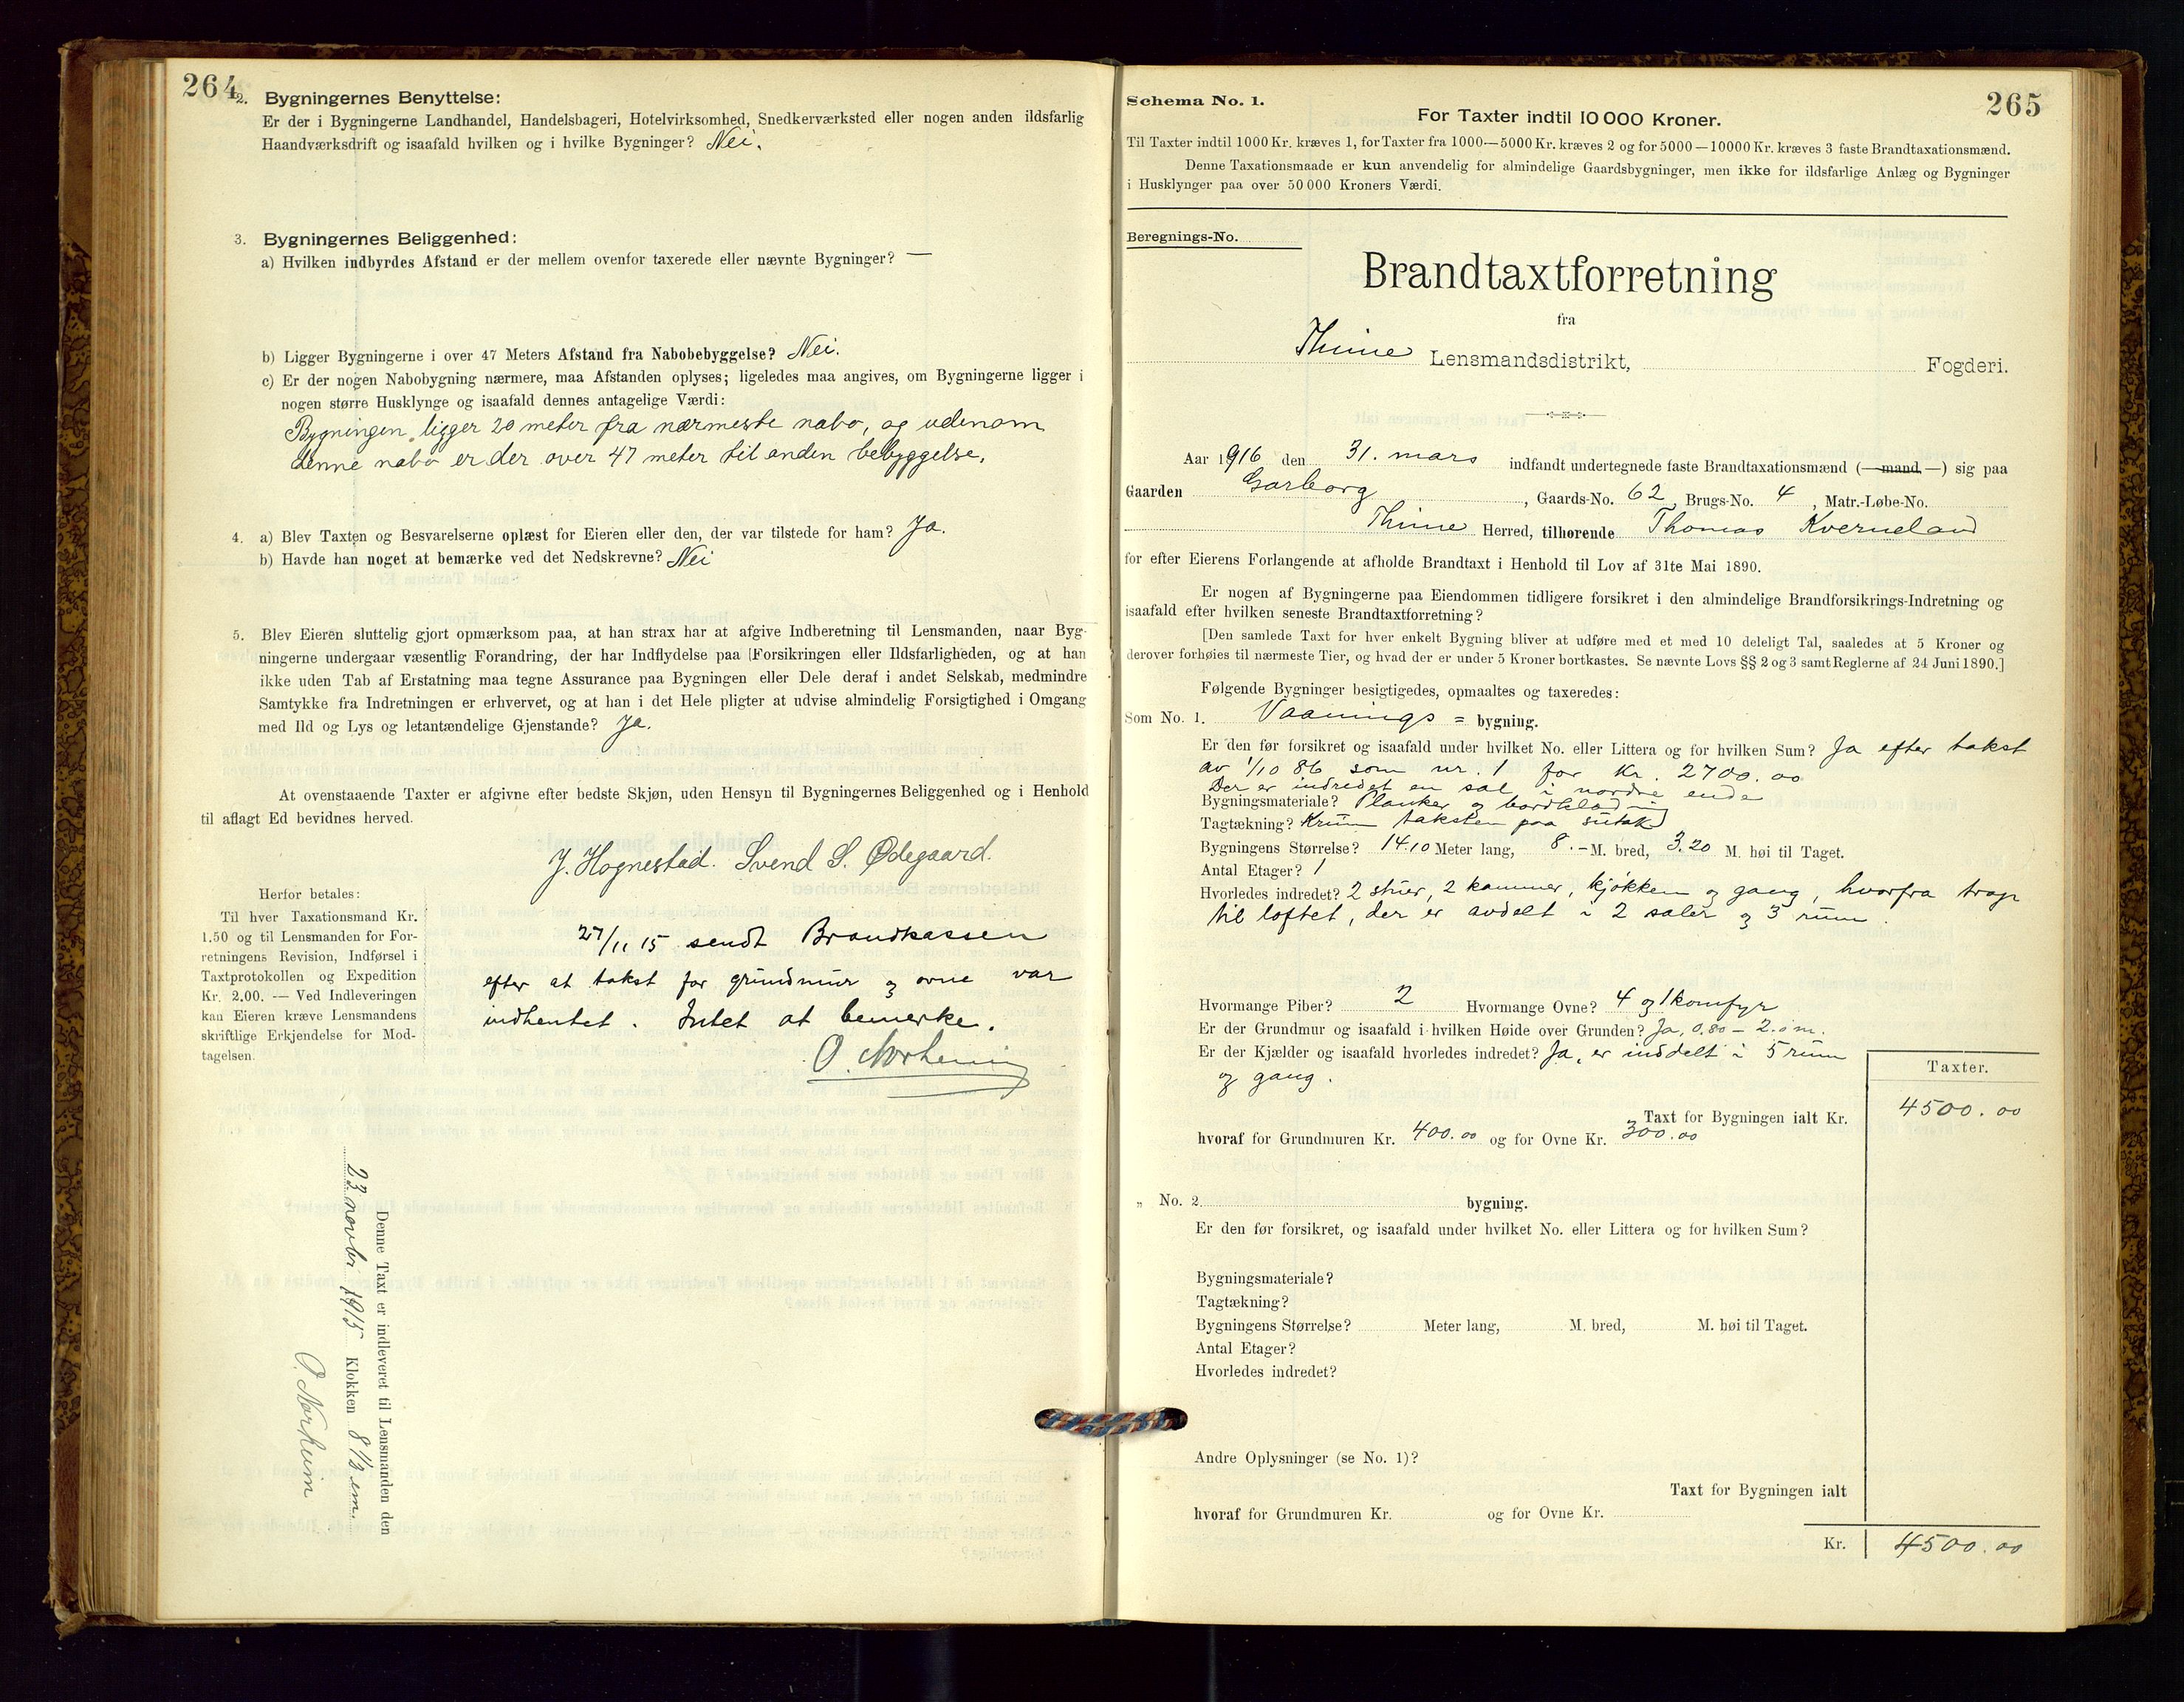 264
2. Bygningernes Benyttelse:
Er der i Bygningerne Landhandel, Handelsbageri, Hotelvirksomhed, Snedkerværksted eller nogen anden ildsfarlig
Haandværksdrift og isaafald hvilken og i hvilke Bygninger? Nei.
3. Bygningernes Beliggenhed:
a) Hvilken indbyrdes Afstand er der mellem ovenfor taxerede eller nævnte Bygninger? —
b) Ligger Bygningerne i over 47 Meters Afstand fra Nabobebyggelse? Nei.
c) Er der nogen Nabobygning nærmere, maa Afstanden oplyses; ligeledes maa angives, om Bygningerne ligger i
nogen større Husklynge og isaafald dennes antagelige Værdi:
Bygningen ligger 20 meter fra nærmeste nabo, og udenom
denne nabo er der over 47 meter til anden bebyggelse.
4. a) Blev Taxten og Besvarelserne oplæst for Eieren eller den, der var tilstede for ham? Ja.
b) Havde han noget at bemærke ved det Nedskrevne? Nei
5. Blev Eieren sluttelig gjort opmærksom paa, at han strax har at afgive Indberetning til Lensmanden, naar Byg-
ningerne undergaar væsentlig Forandring, der har Indflydelse paa [Forsikringen eller Ildsfarligheden, og at han
ikke uden Tab af Erstatning maa tegne Assurance paa Bygningen eller Dele deraf i andet Selskab, medmindre
Samtykke fra Indretningen er erhvervet, og at han i det Hele pligter at udvise almindelig Forsigtighed i Omgang
med Ild og Lys og letantændelige Gjenstande? Ja.
At ovenstaaende Taxter er afgivne efter bedste Skjøn, uden Hensyn til Bygningernes Beliggenhed og i Henhold
til aflagt Ed bevidnes herved.
J. Hognestad. Svend S. Ødegaard.
Herfor betales:
Til hver Taxationsmand Kr.
1.50 og til Lensmanden for For-
retningens Revision, Indførsel i
Taxtprotokollen og Expedition
Kr. 2.00. — Ved Indleveringen
kan Eieren kræve Lensmandens
skriftlige Erkjendelse for Mod-
tagelsen.
27/11 15 sendt Brandkassen
efter at takst for grundmur og ovne var
indhentet. Intet at bemerke.
O. Norheim
Denne Taxt er indleveret til Lensmanden den
23 novbr 1915 Klokken 8 1/2 em.
O. Norheim
265
Schema No. 1.
For Taxter indtil 10 000 Kroner.
Til Taxter indtil 1000 Kr. kræves 1, for Taxter fra 1000—5000 Kr. kræves 2 og for 5000—10000 Kr. kræves 3 faste Brandtaxationsmænd.
Denne Taxationsmaade er kun anvendelig for almindelige Gaardsbygninger, men ikke for ildsfarlige Anlæg og Bygninger
i Husklynger paa over 50 000 Kroners Værdi.
Beregnings-No.
Brandtaxtforretning
fra
Thime Lensmandsdistrikt, Fogderi.
Aar 1916 den 31. mars indfandt undertegnede faste Brandtaxationsmænd (—mand—) sig paa
Gaarden Garborg, Gaards-No. 62, Brugs-No. 4, Matr.-Løbe-No.
Thime Herred, tilhørende Thomas Kverneland
for efter Eierens Forlangende at afholde Brandtaxt i Henhold til Lov af 31te Mai 1890.
Er nogen af Bygningerne paa Eiendommen tidligere forsikret i den almindelige Brandforsikrings-Indretning og
isaafald efter hvilken seneste Brandtaxtforretning?
[Den samlede Taxt for hver enkelt Bygning bliver at udføre med et med 10 deleligt Tal, saaledes at 5 Kroner og
derover forhøies til nærmeste Tier, og hvad der er under 5 Kroner bortkastes. Se nævnte Lovs §§ 2 og 3 samt Reglerne af 24 Juni 1890.]
Følgende Bygninger besigtigedes, opmaaltes og taxeredes:
Som No. 1. Vaanings = bygning.
Er den før forsikret og isaafald under hvilket No. eller Littera og for hvilken Sum? Ja efter takst
av 1/10 86 som nr. 1 for Kr. 2700.00
Der er indredet en sal i nordre ende
Bygningsmateriale? Planker og bordklædning
Tagtækning? Krum taksten paa sutak
Bygningens Størrelse? 14.10 Meter lang, 8.– M. bred, 3.20 M. høi til Taget.
Antal Etager? 1
Hvorledes indredet? 2 stuer, 2 kammer, kjøkken og gang, hvorfra trap
til loftet, der er avdelt i 2 saler og 3 rum.
Hvormange Piber? 2 Hvormange Ovne? 4 og 1 komfyr
Er der Grundmur og isaafald i hvilken Høide over Grunden? Ja, 0.80 – 2.0 m.
Er der Kjælder og isaafald hvorledes indredet? Ja, er inddelt i 5 rum
og gang.
Taxter.
Taxt for Bygningen ialt Kr. 4500.00
hvoraf for Grundmuren Kr. 400.00 og for Ovne Kr. 300.00
„ No. 2 bygning.
Er den før forsikret, og isaafald under hvilket No. eller Littera og for hvilken Sum?
Bygningsmateriale?
Tagtækning?
Bygningens Størrelse? Meter lang, M. bred, M. høi til Taget.
Antal Etager?
Hvorledes indredet?
Andre Oplysninger (se No. 1)?
Taxt for Bygningen ialt
hvoraf for Grundmuren Kr. og for Ovne Kr.
Kr. 4500.00